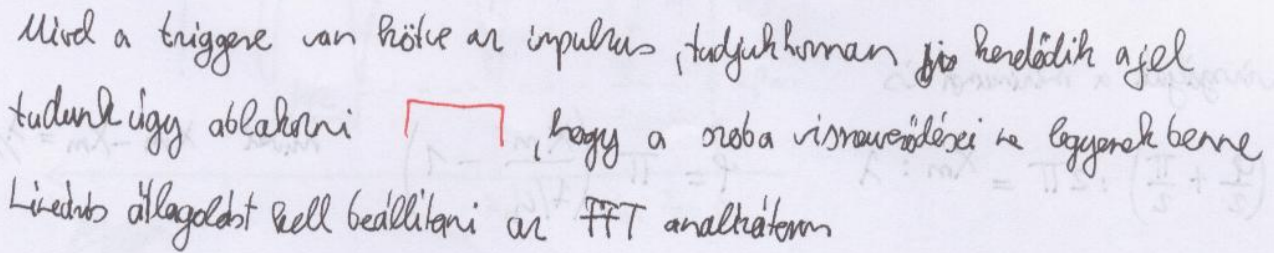 Mivel a triggere van kötve az impulzus, tudjuk honnan kezdődik a jel
tudunk úgy ablakozni , hogy a szoba visszaverődései ne legyenek benne
Lineáris átlagolást kell beállítani az FFT analizátoron